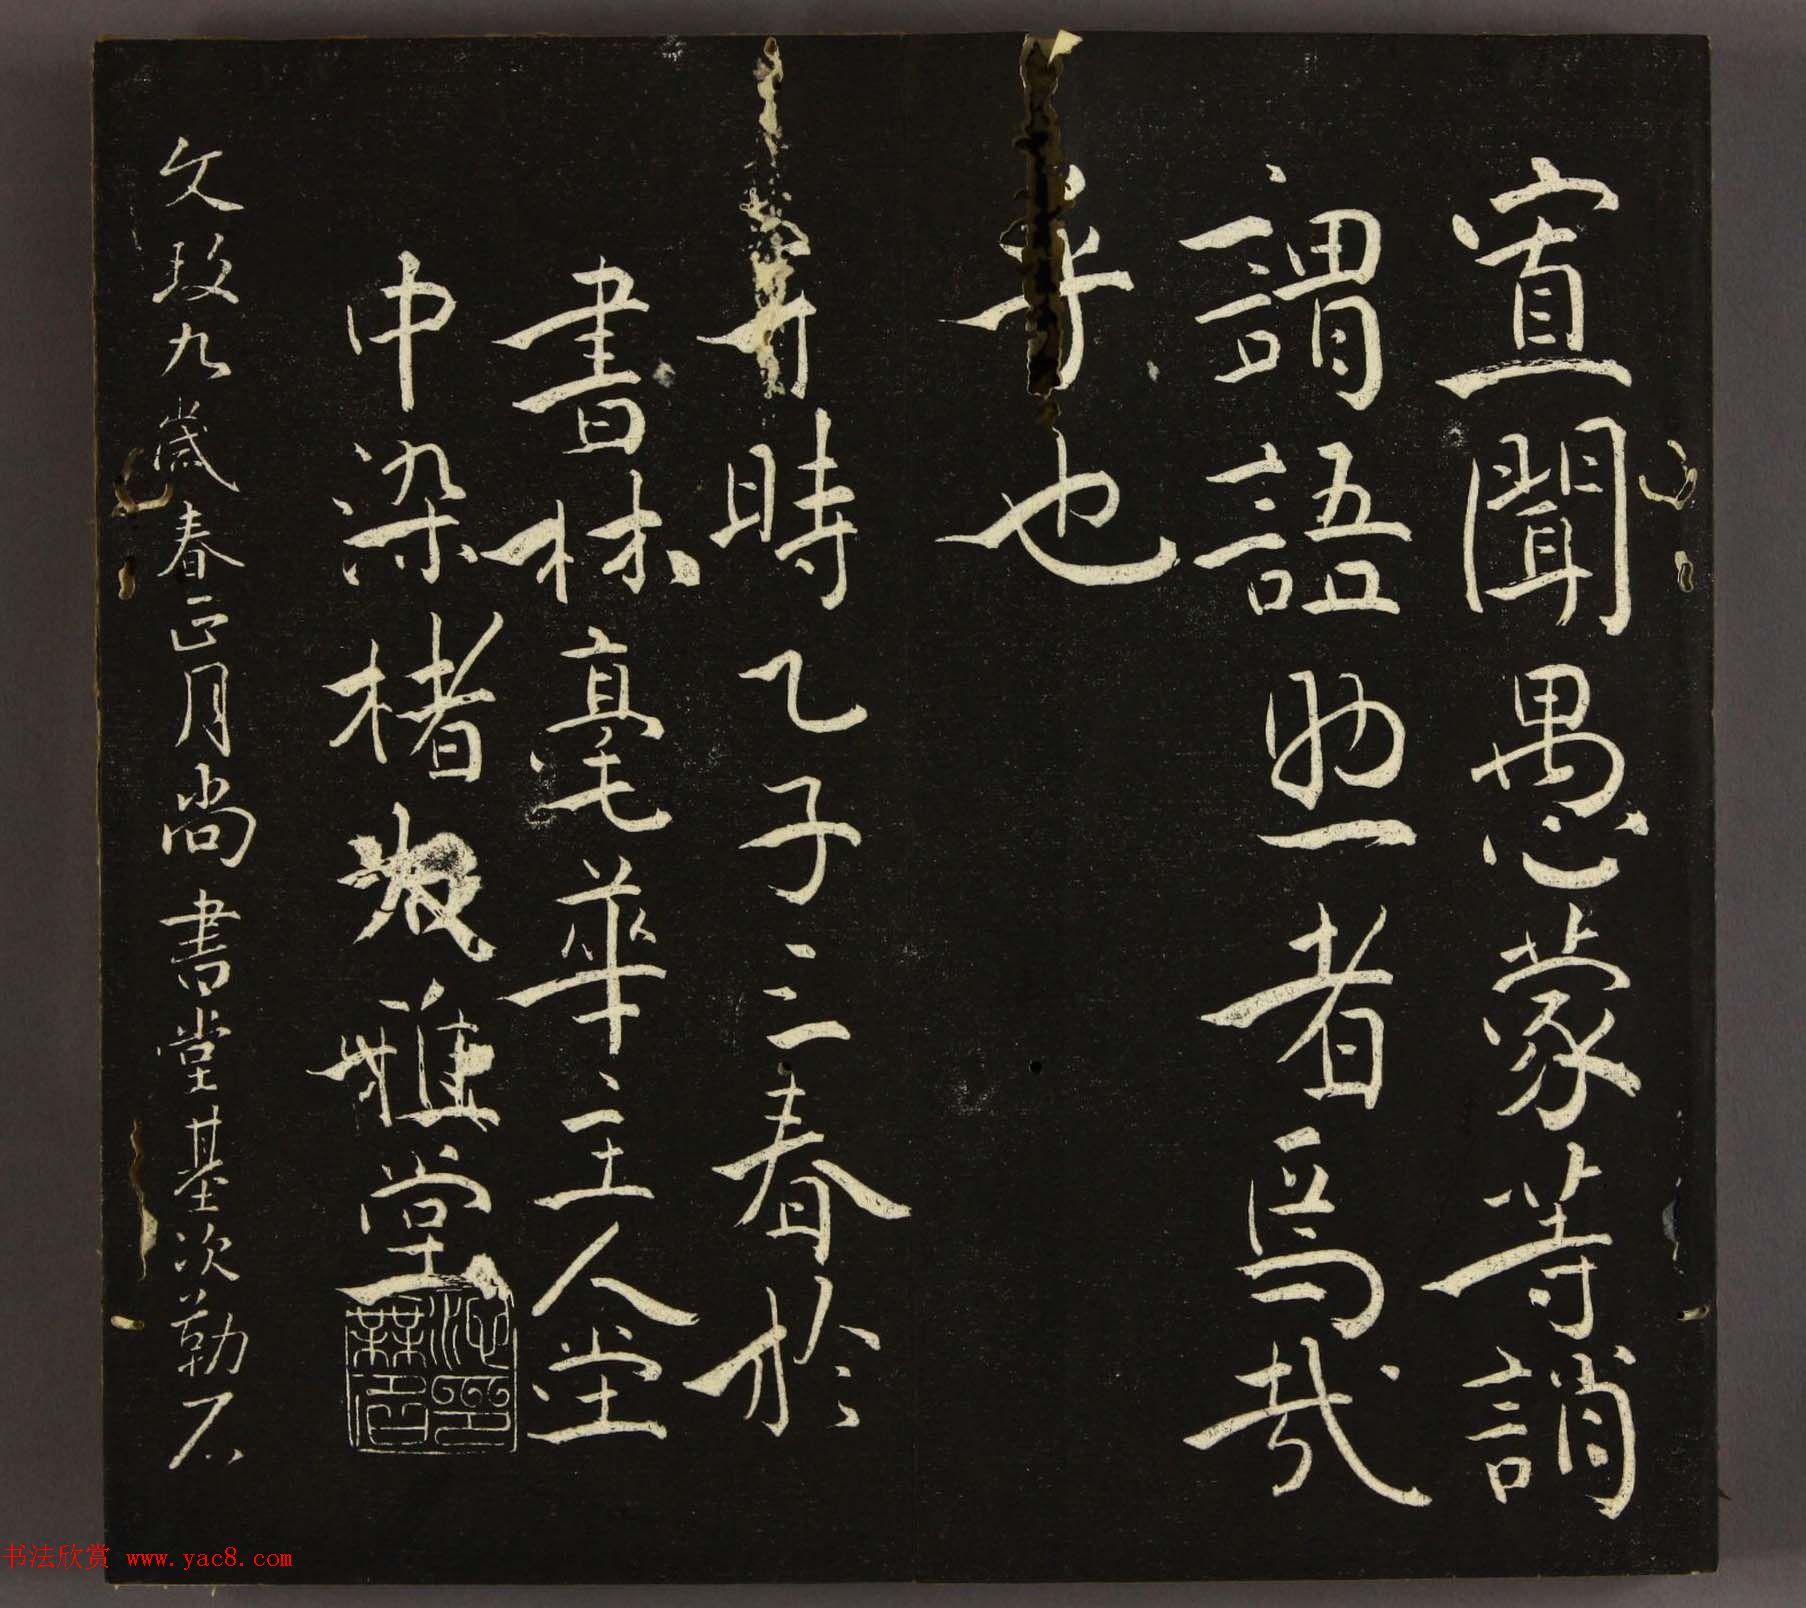 寡聞愚蒙等誚
謂語助者焉哉
乎也
時乙子三春於
書林毫華主人堂
中染楮雅堂
文政九歲春正月尚書堂基次勒石
书法欣赏 www.yac8.com